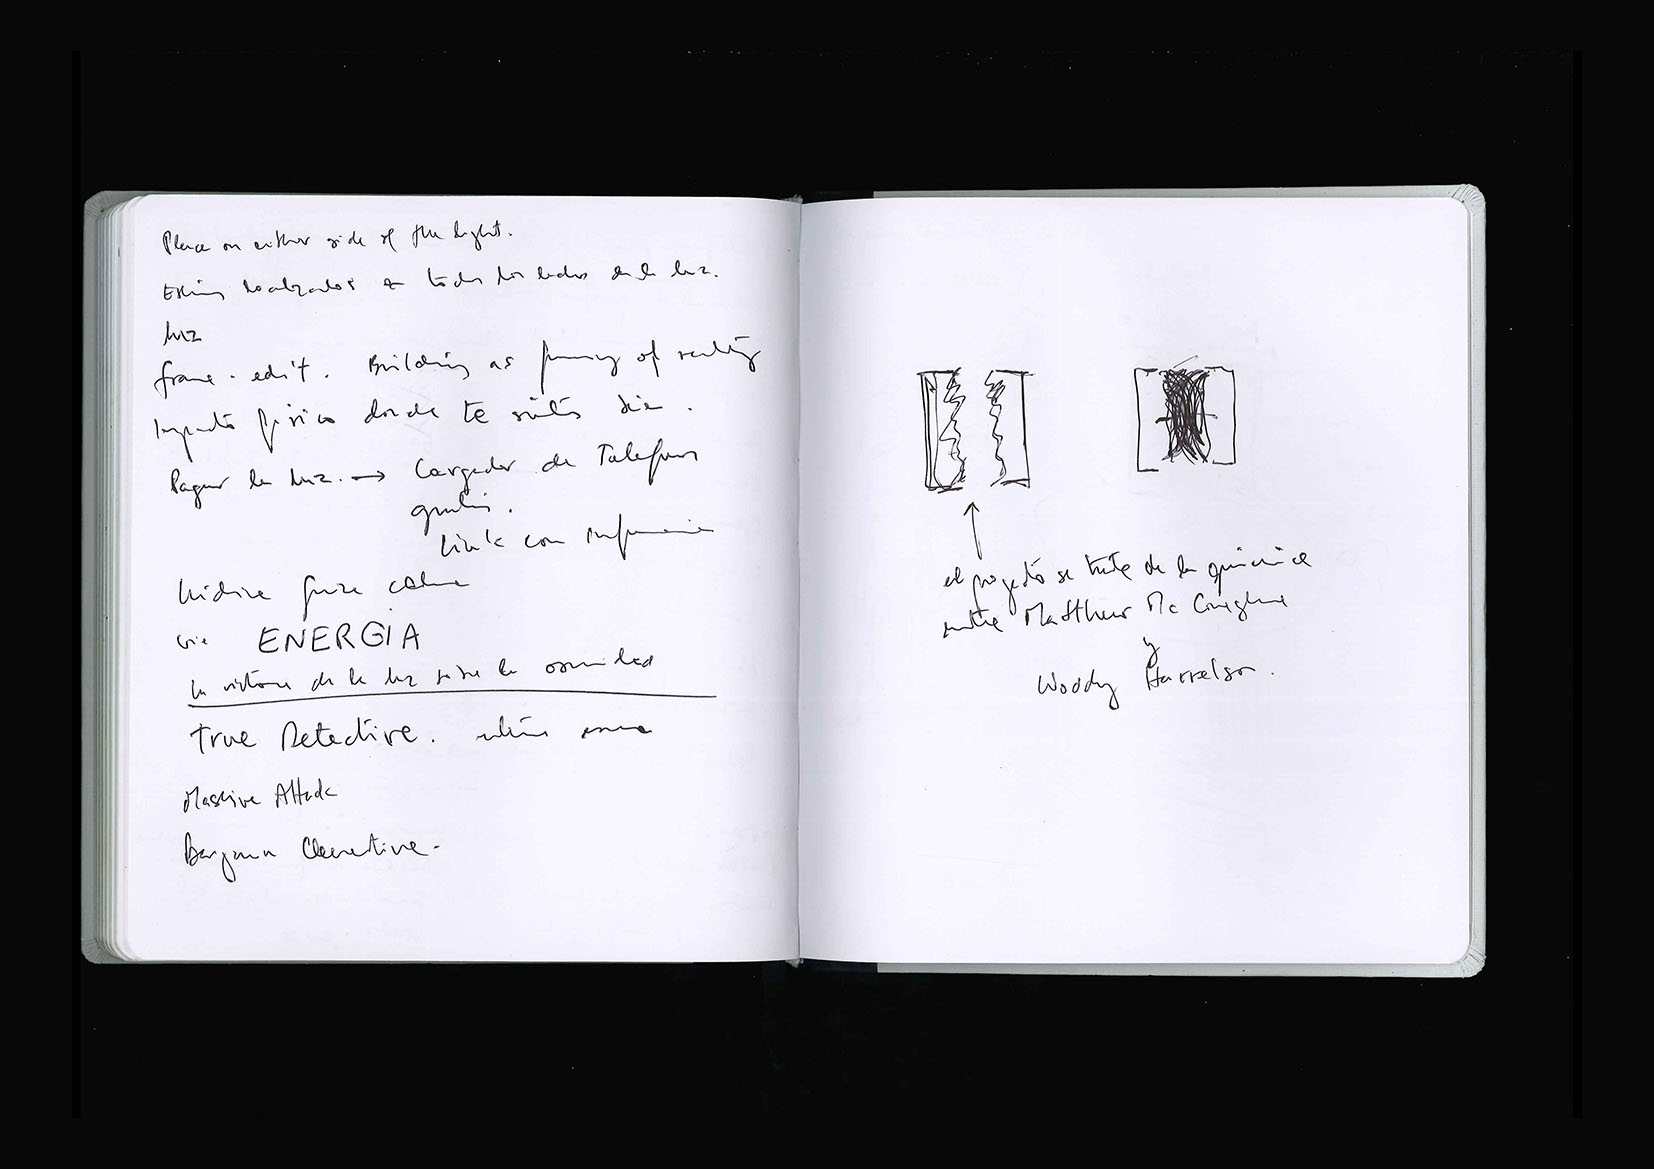 Place on either side of the light.
localizados en todos los lados de la luz.
luz
frame - edit. Building as framing of reality
físico donde te sientes bien.
Pagar la luz. → Cargador de Telefono
gratis.
Link con
ENERGIA
la victoria de la luz sobre la oscuridad
True Detective. ultima
Massive Attack
Benjamin Clementine.
el proyecto se trata de la quimica
entre Matthew Mc Conaghue
y
Woody Harrelson.